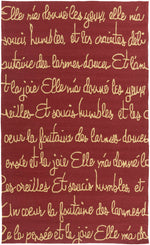 Elle m'a donné les yeux, elle m'a
soucis humbles, et les craintes déli
ontaine des larmes douces. Et l'am
et la joie. Elle m'a donné les yeux,
reilles. Et soucis humbles, et les
coeur, la fontaine des larmes douces
ensée et la joie. Elle m'a donné les
es oreilles. Et soucis humbles, et
Un coeur, la fontaine des larmes do
et la joie. Elle m'a donné les